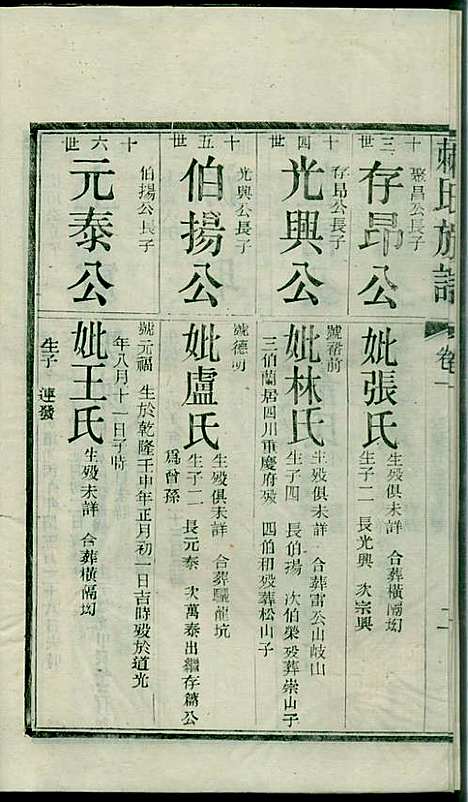 族譜
卷一
十三世
聚昌公長子
存昂公
妣張氏
生歿俱未詳 合葬橫塥㘭
生子二 長光興 次宗興
十四世
存昂公長子
光興公
號裕前
妣林氏
生歿俱未詳 合葬雷公山岐山
生子四 長伯揚 次伯榮歿葬崇山子
三伯蘭居四川重慶府歿 四伯和歿葬松山子
十五世
光興公長子
伯揚公
號德明
妣盧氏
生歿俱未詳 合葬龍坑
生子二 長元泰 次萬泰出繼存篇公
為曾孫
十六世
伯揚公長子
元泰公
號元福 生於乾隆壬申年正月初一日吉時歿於道光
年八月十一日子時
妣王氏
生歿未詳 合葬橫塥㘭
生子 連發